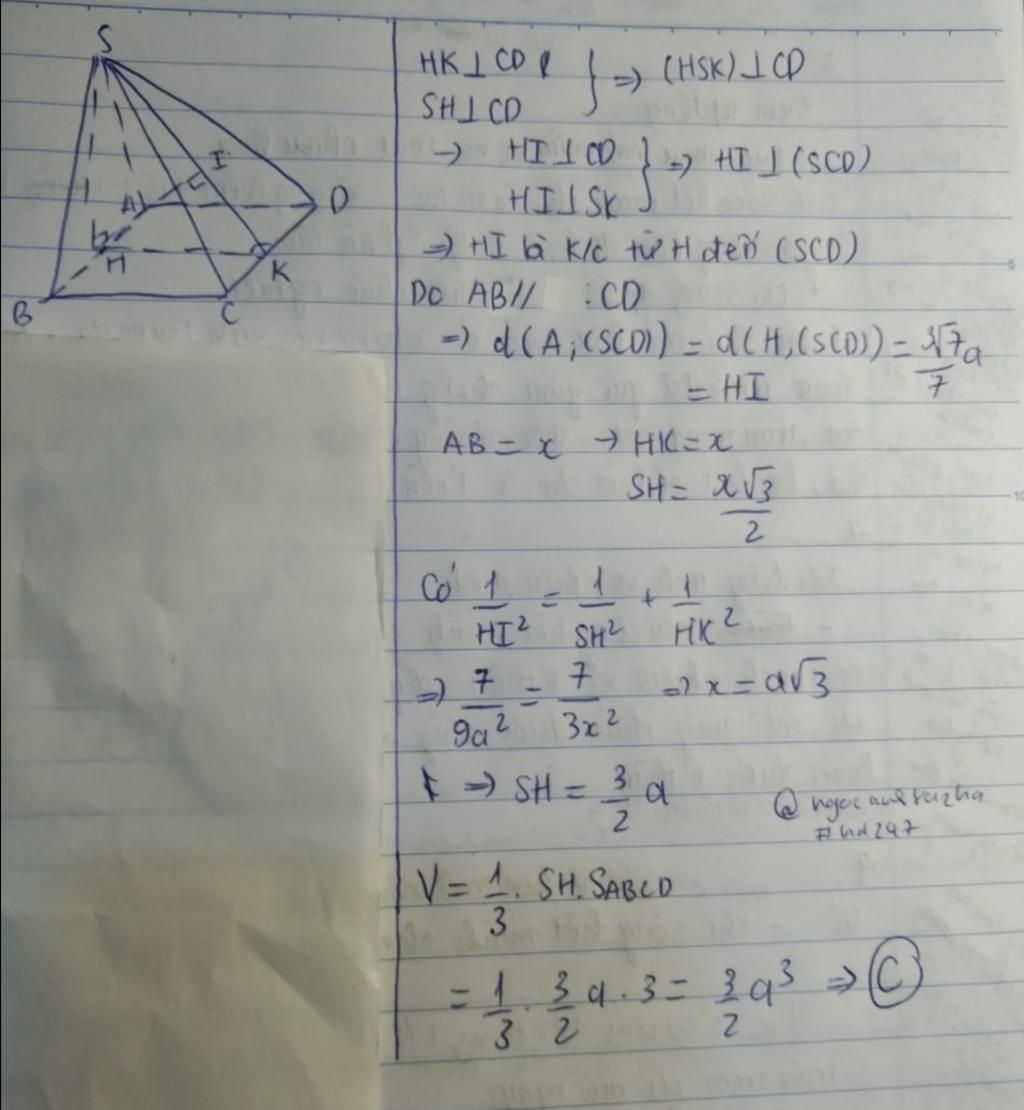 S
A
I
D
H
K
B
C
HK⊥CD
SH⊥CD } ⇒ (HSK)⊥CD
→ HI⊥CD
HI⊥SK } ⇒ HI⊥(SCD)
⇒ HI là K/c từ H đến (SCD)
DO AB// CD
⇒ d(A;(SCD)) = d(H,(SCD)) = 3√7/7 a
= HI
AB = x → HK = x
SH = x√3/2
Có 1/HI² = 1/SH² + 1/HK²
⇒ 7/9a² = 7/3x² ⇒ x = a√3
⇒ SH = 3/2 a
#hd247
V = 1/3 . SH.SABCD
= 1/3 . 3/2 a . 3 = 3/2 a³ ⇒ C